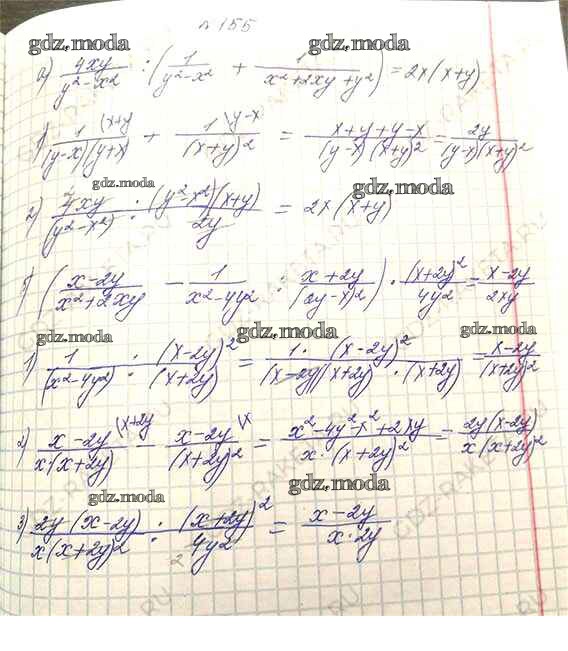 № 155
gdz.moda gdz.moda
а) 4xy/(y²-x²) : (1/(y²-x²) + 1/(x²+2xy+y²)) = 2x(x+y)
1) 1/((y-x)(y+x)) (x+y + 1/(x+y)² \y-x = (x+y+y-x)/((y-x)(x+y)²) = 2y/((y-x)(x+y)²)
gdz.moda gdz.moda
2) 4xy/(y²-x²) · (y²-x²)(x+y)/2y = 2x(x+y)
б) ((x-2y)/(x²+2xy) - 1/(x²-4y²) : (x+2y)/(2y-x)²) · (x+2y)²/4y² = (x-2y)/2xy
gdz.moda gdz.moda gdz.moda
1) 1/(x²-4y²) : (x-2y)²/(x+2y) = 1·(x-2y)²/((x-2y)(x+2y)·(x+2y)) = (x-2y)/(x+2y)²
2) (x-2y)/(x(x+2y)) (x+2y - (x-2y)/(x+2y)² \x = (x²-4y²-x²+2xy)/(x·(x+2y)²) = 2y(x-2y)/(x(x+2y)²)
gdz.moda gdz.moda
3) 2y(x-2y)/(x(x+2y)²) : (x+2y)²/4y² = (x-2y)/(x·2y)